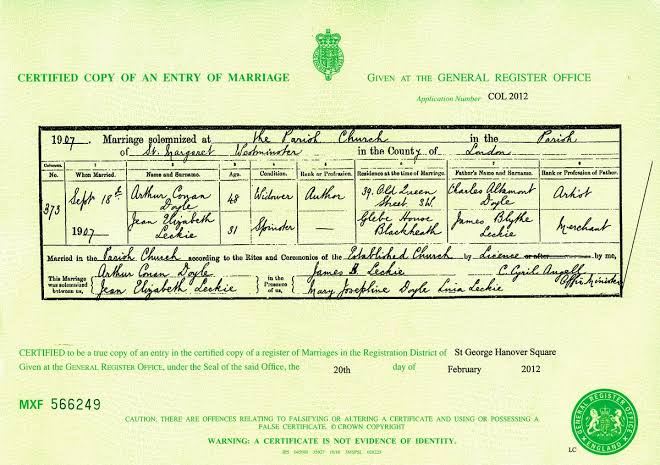 CERTIFIED COPY OF AN ENTRY OF MARRIAGE
GIVEN AT THE GENERAL REGISTER OFFICE
Application Number COL 2012
1907. Marriage solemnized at the Parish Church in the Parish
of St. Margaret Westminster in the County of London
Columns. 1 2 3 4 5 6 7 8
No. When Married. Name and Surname. Age. Condition. Rank or Profession. Residence at the time of Marriage. Father's Name and Surname. Rank or Profession of Father.
373 Sept 18th 1907 Arthur Conan Doyle 48 Widower Author 39. Old Queen Street SW Charles Altamont Doyle Artist
Jean Elizabeth Leckie 31 Spinster — Glebe House Blackheath James Blythe Leckie Merchant
Married in the Parish Church according to the Rites and Ceremonies of the Established Church by Licence or after by me,
This Marriage was solemnized between us, Arthur Conan Doyle Jean Elizabeth Leckie in the Presence of us, James B Leckie Mary Josephine Doyle Leckie C. Cyril Angell
CERTIFIED to be a true copy of an entry in the certified copy of a register of Marriages in the Registration District of St George Hanover Square
Given at the GENERAL REGISTER OFFICE, under the Seal of the said Office, the 20th day of February 2012
MXF 566249
CAUTION: THERE ARE OFFENCES RELATING TO FALSIFYING OR ALTERING A CERTIFICATE AND USING OR POSSESSING A
FALSE CERTIFICATE. © CROWN COPYRIGHT
WARNING: A CERTIFICATE IS NOT EVIDENCE OF IDENTITY.
GENERAL REGISTER OFFICE
ENGLAND
LC